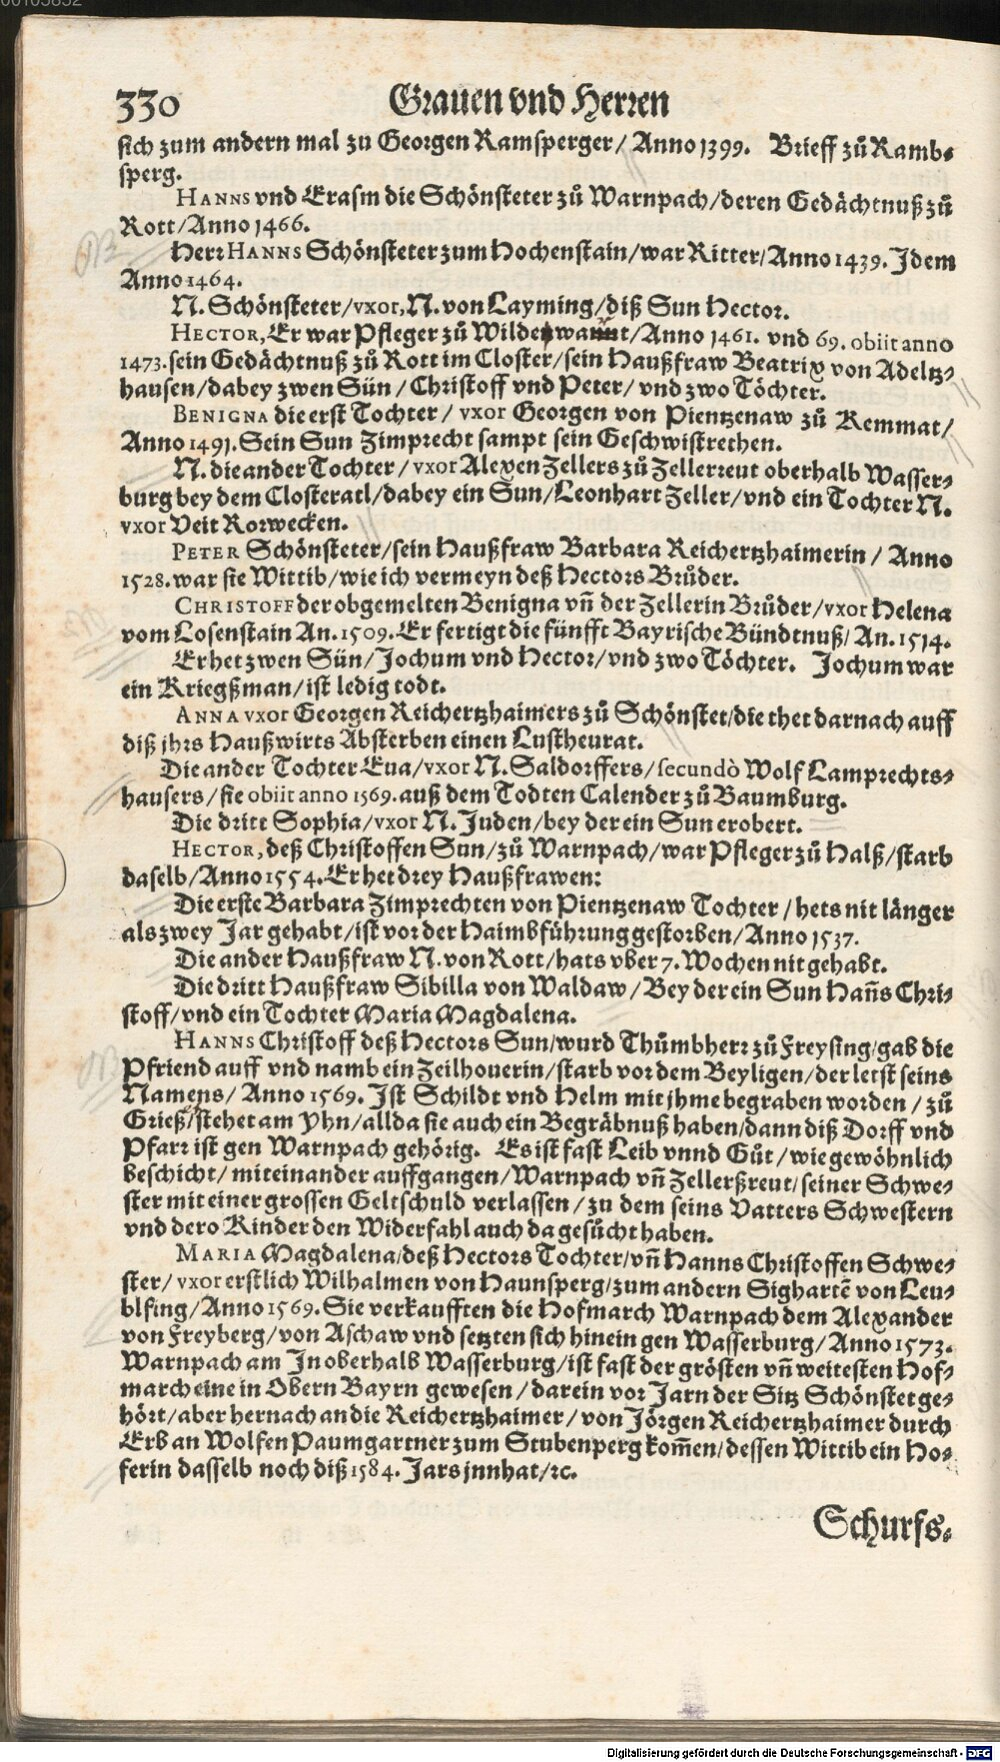 00103832
330 Grauen vnd Herren
sich zum andern mal zu Georgen Ramsperger / Anno 1399. Brieff zů Ramb⸗
sperg.
HANNS vnd Erasm die Schönsteter zů Warnpach / deren Gedächtnuß zů
Rott / Anno 1466.
Herr HANNS Schönsteter zum Hochenstain / war Ritter / Anno 1439. Idem
Anno 1464.
N. Schönsteter / vxor, N. von Layming / diß Sun Hector.
HECTOR, Er war Pfleger zů / Anno 1461. vnd 69. obiit anno
1473. sein Gedächtnuß zů Rott im Closter / sein Haußfraw Beatrix von Adeltz⸗
hausen / dabey zwen Sün / Christoff vnd Peter / vnd zwo Töchter.
BENIGNA die erst Tochter / vxor Georgen von Pientzenaw zů Kemmat /
Anno 1491. Sein Sun Zimprecht sampt sein Geschwistrethen.
N. die ander Tochter / vxor Alexen Zellers zů Zellerreut oberhalb Wasser⸗
burg bey dem Closter atl / dabey ein Sun / Leonhart Zeller / vnd ein Tochter N.
vxor Veit Rorwecken.
PETER Schönsteter / sein Haußfraw Barbara Reichertzhaimerin / Anno
1528. war sie Wittib / wie ich vermeyn deß Hectors Brůder.
CHRISTOFF der obgemelten Benigna vñ der Zellerin Brůder / vxor Helena
vom Losenstain An. 1509. Er fertigt die fünfft Bayrische Bündtnuß / An. 1514.
Er het zwen Sün / Jochum vnd Hector / vnd zwo Töchter. Jochum war
ein Kriegßman / ist ledig todt.
ANNA vxor Georgen Reichertzhaimers zů Schönstet / die thet darnach auff
diß jhrs Haußwirts Absterben einen Lustheurat.
Die ander Tochter Eua / vxor N. Saldorffers / secundò Wolf Lamprechts⸗
hausers / sie obiit anno 1569. auß dem Todten Calender zů Baumburg.
Die dritt Sophia / vxor N. Juden / bey der ein Sun erobert.
HECTOR, deß Christoffen Sun / zů Warnpach / war Pfleger zů Halß / starb
daselb / Anno 1554. Er het drey Haußfrawen:
Die erste Barbara Zimprechten von Pientzenaw Tochter / hets nit länger
als zwey Jar gehabt / ist vor der Haimbführung gestorben / Anno 1537.
Die ander Haußfraw N. von Rott / hats vber 7. Wochen nit gehabt.
Die dritt Haußfraw Sibilla von Waldaw / Bey der ein Sun Hañs Chri⸗
stoff / vnd ein Tochter Maria Magdalena.
HANNS Christoff deß Hectors Sun / wurd Thůmbherr zů Freysing / gab die
Pfriend auff vnd namb ein Zeilhouerin / starb vor dem Beyligen / der letst seins
Namens / Anno 1569. Ist Schildt vnd Helm mit jhme begraben worden / zů
Grieß / stehet am Yhn / allda sie auch ein Begräbnuß haben / dann diß Dorff vnd
Pfarr ist gen Warnpach gehörig. Es ist fast Leib vnnd Gůt / wie gewöhnlich
beschicht / miteinander auffgangen / Warnpach vñ Zellerßreut / seiner Schwe⸗
ster mit einer grossen Geltschuld verlassen / zu dem seins Vatters Schwestern
vnd dero Kinder den Widerfahl auch da gesücht haben.
MARIA Magdalena / deß Hectors Tochter / vñ Hanns Christoffen Schwe⸗
ster / vxor erstlich Wilhalmen von Haunsperg / zum andern Sighartẽ von Leu⸗
blfing / Anno 1569. Sie verkaufften die Hofmarch Warnpach dem Alexander
von Freyberg / von Aschaw vnd setzten sich hinein gen Wasserburg / Anno 1573.
Warnpach am In oberhalb Wasserburg / ist fast der grösten vñ weitesten Hof⸗
march eine in Obern Bayrn gewesen / darein vor Jarn der Sitz Schönstet ge⸗
hört / aber hernach an die Reichertzhaimer / von Jörgen Reichertzhaimer durch
Erb an Wolfen Paumgartner zum Stubenperg kom̃en / dessen Wittib ein Ho⸗
ferin dasselb noch diß 1584. Jars jnnhat / ꝛc.
Schurfs⸗
Digitalisierung gefördert durch die Deutsche Forschungsgemeinschaft - DFG